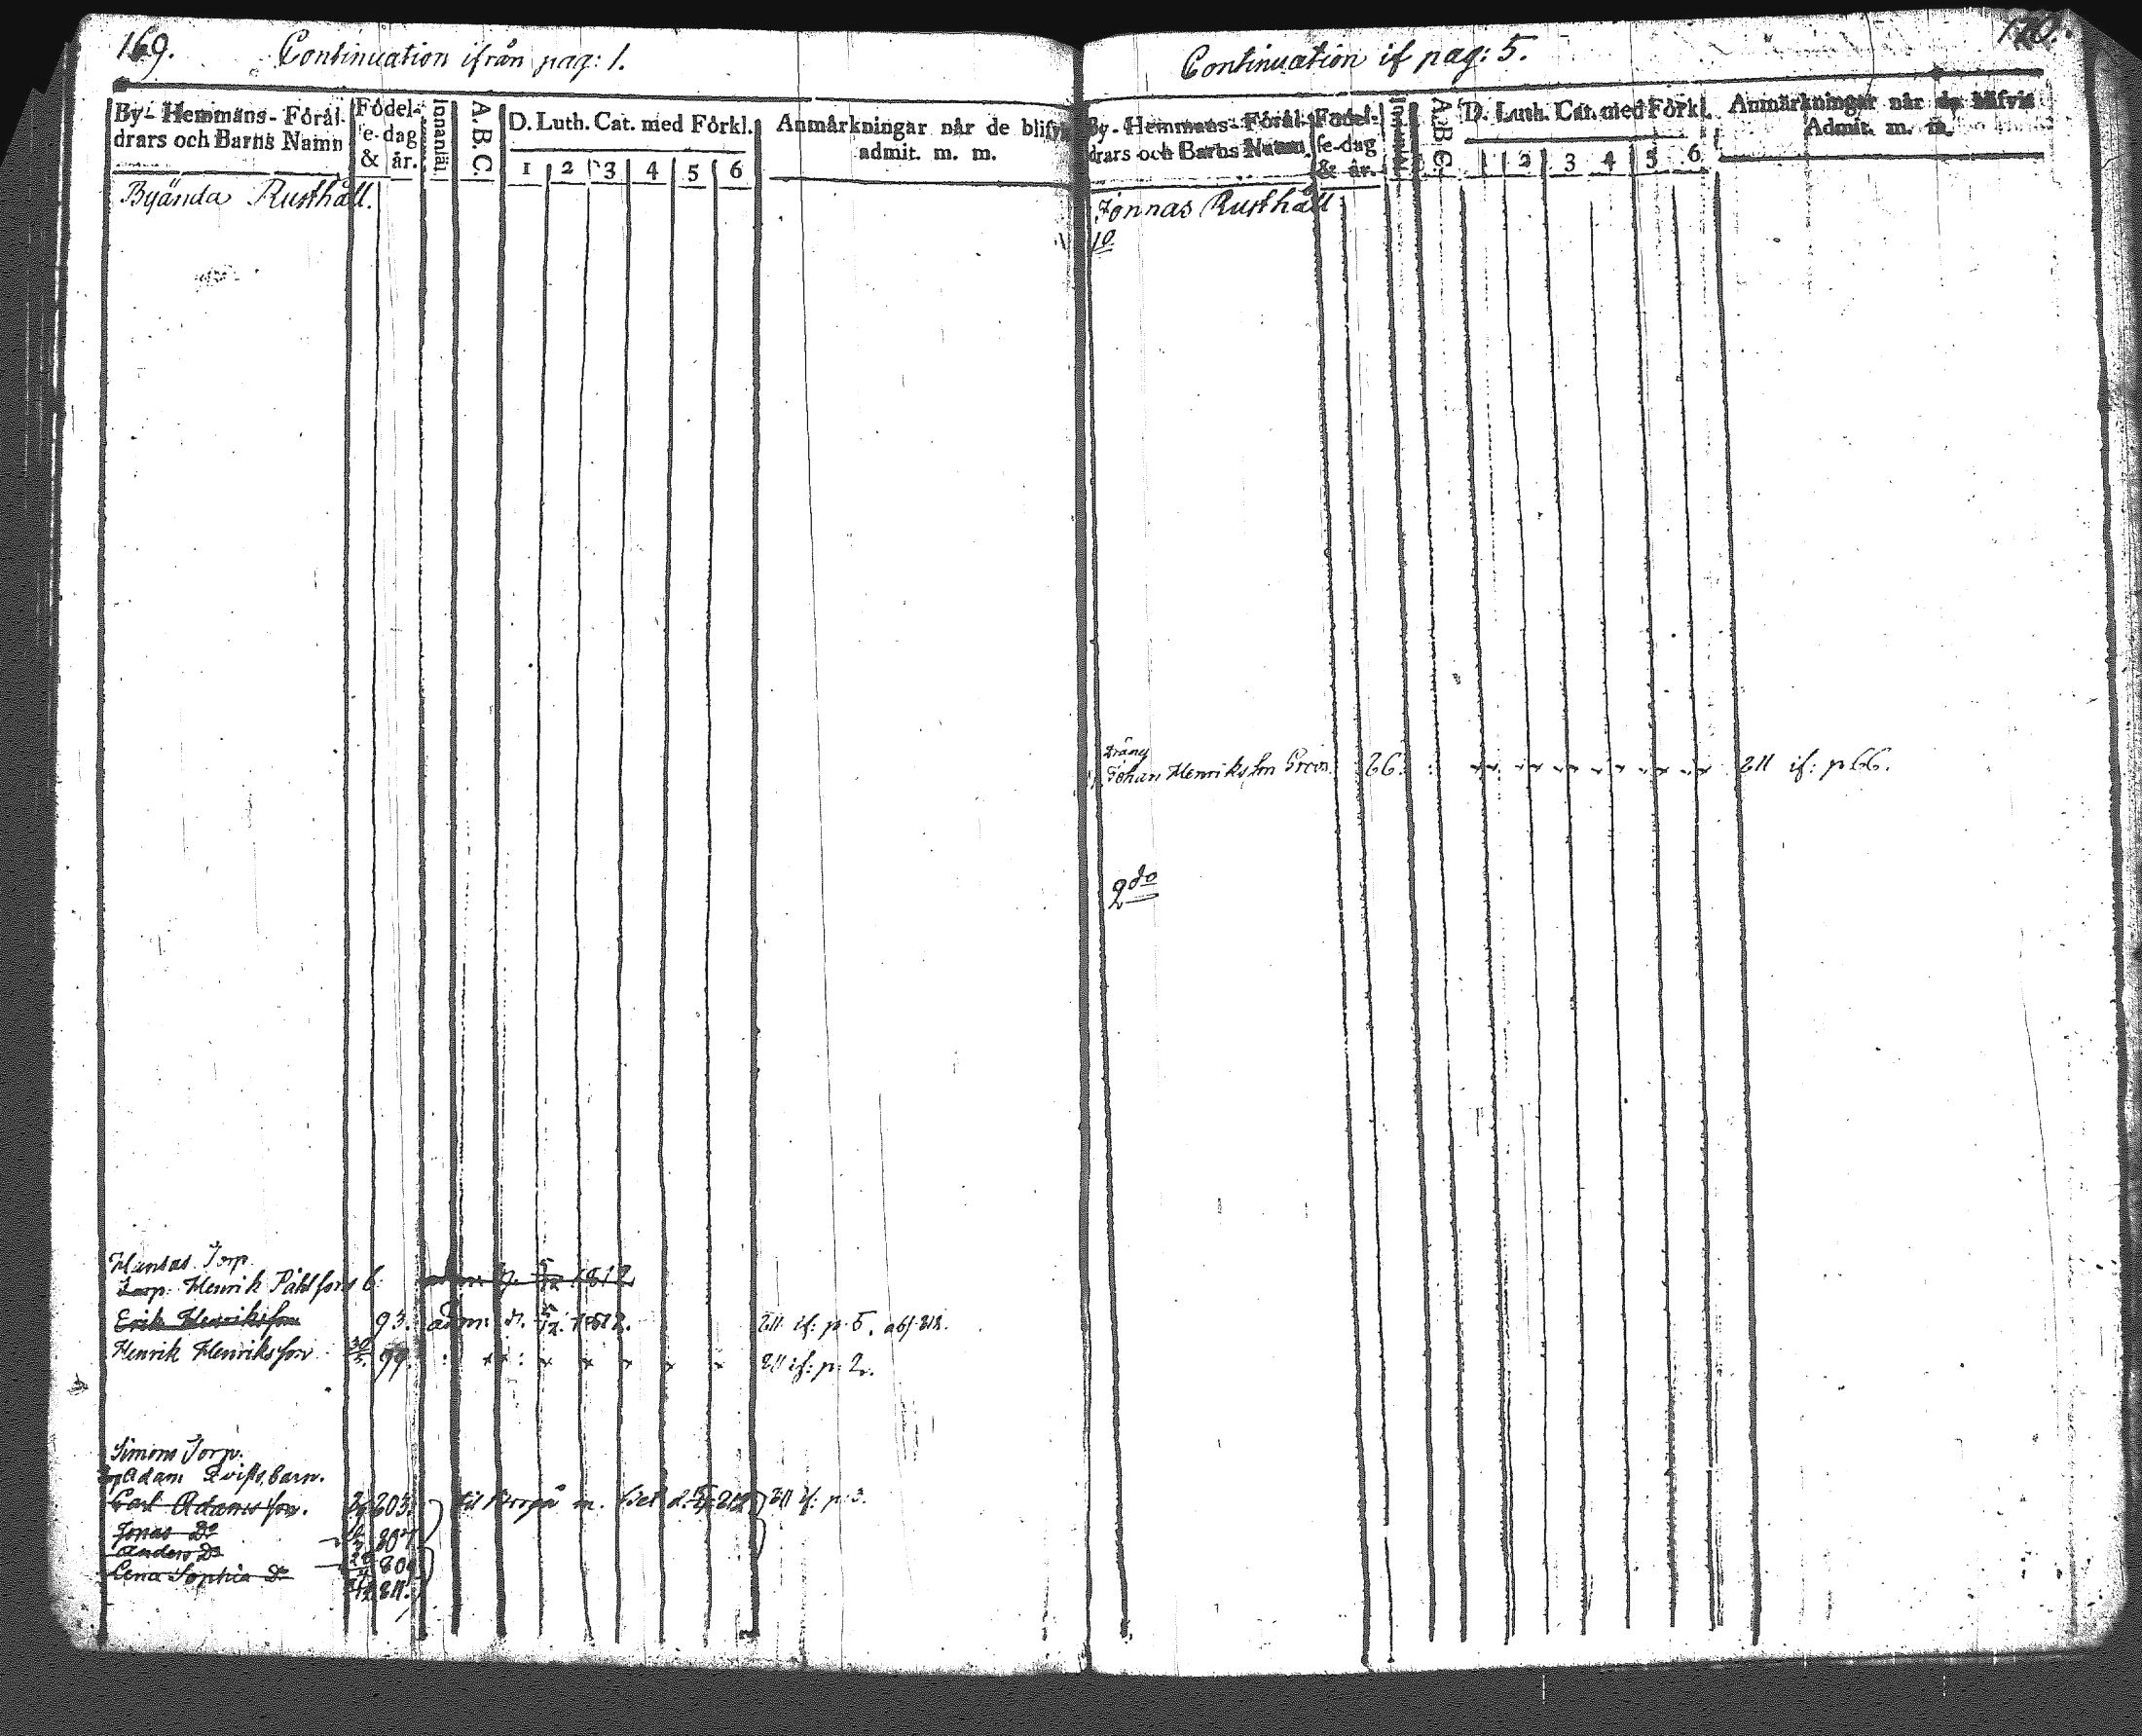 169. Continuation ifrån pag: 1.
By- Hemmans- Förål-
drars och Barns Namn
Födel-
se-dag
& år.
Innanläs.
A.B.C.
D. Luth. Cat. med Förkl.
1 2 3 4 5 6
Anmårkningar når de blifvit
admit. m. m.
Byända Rusthåll.
Hansas Torp
Torp. Henrik Påhlsons b.
Erik Henriksson 93. adm. d. 1812. 811 if: p. 5.
Henrik Henriksson 30/5 99. 811 if: p: 2.
Simons Torp.
Adam Qvists barn.
Carl Adamsson. 805. til Borgå m. 811 if: p: 3.
Jonas Do 807
Anders Do 809
Lena Sophia Do 811.
170.
Continuation if pag: 5.
By- Hemmans- Förål-
drars och Barns Namn
Födel-
se-dag
& år.
A.B.C.
D. Luth. Cat. med Förkl.
1 2 3 4 5 6
Anmårkningar når de blifvit
Admit. m. m.
Jonnas Rusthåll
1o
Dräng
Johan Henriksson 86. 811 if: p 66.
2do